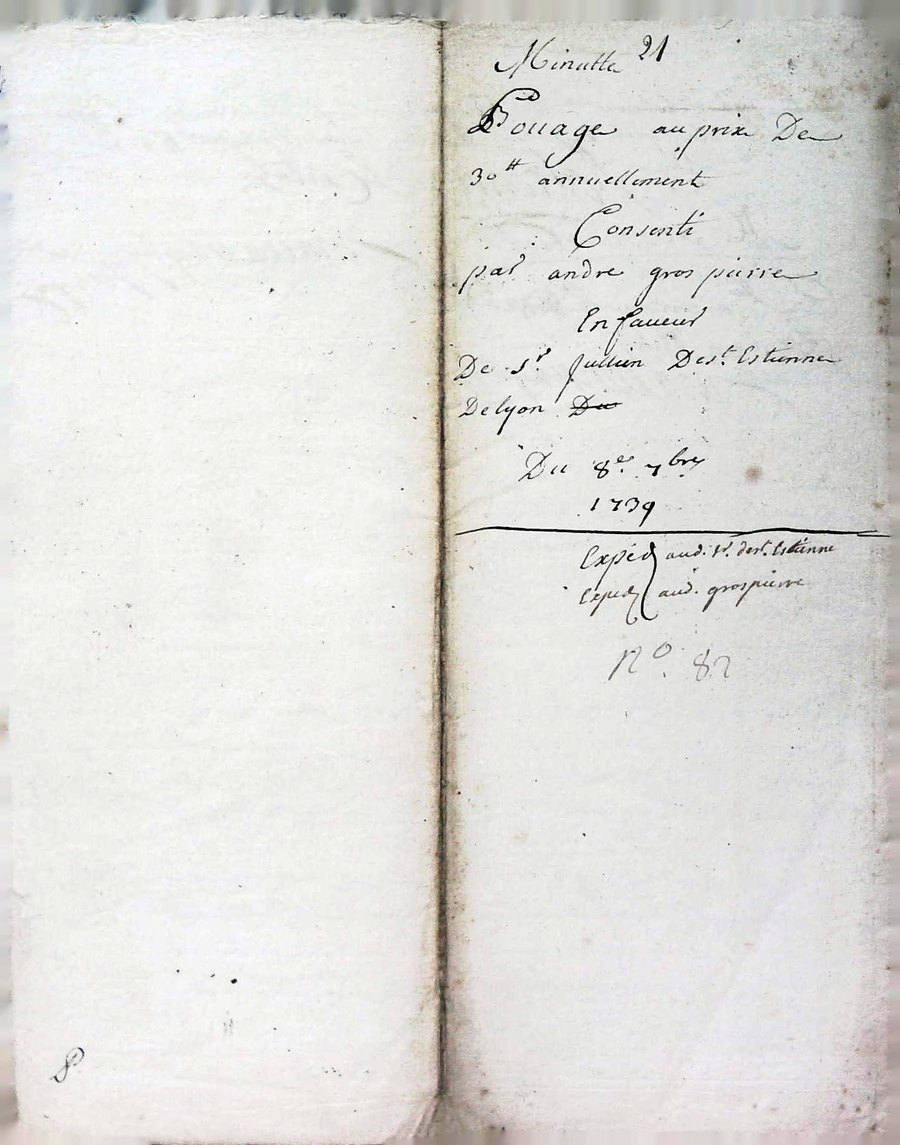 Minutte 21
Louage au prix De
30tt annuellement
Consenti
par andre gros pierre
En faveur
De Sr. Jullien De st. Estienne
De lyon Du
Du 8e. 7bre
1739
Exped aud. Sr. de st. Estienne
Exped aud. grospierre
No. 82
8